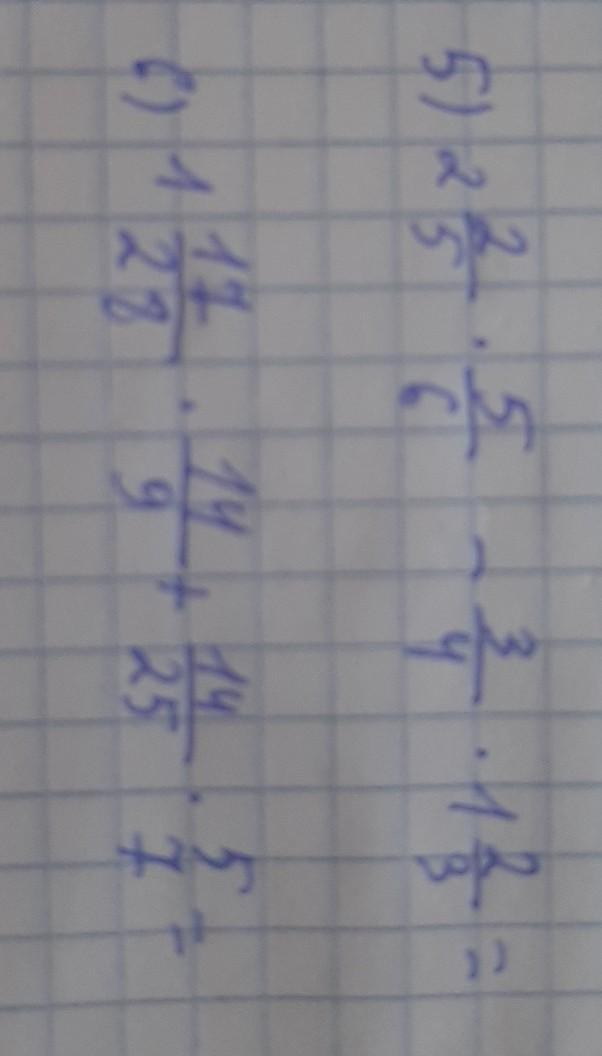 5) 2 2/5 · 5/6 - 3/4 · 1 2/3 =
6) 1 17/28 · 14/9 + 14/25 · 5/7 =